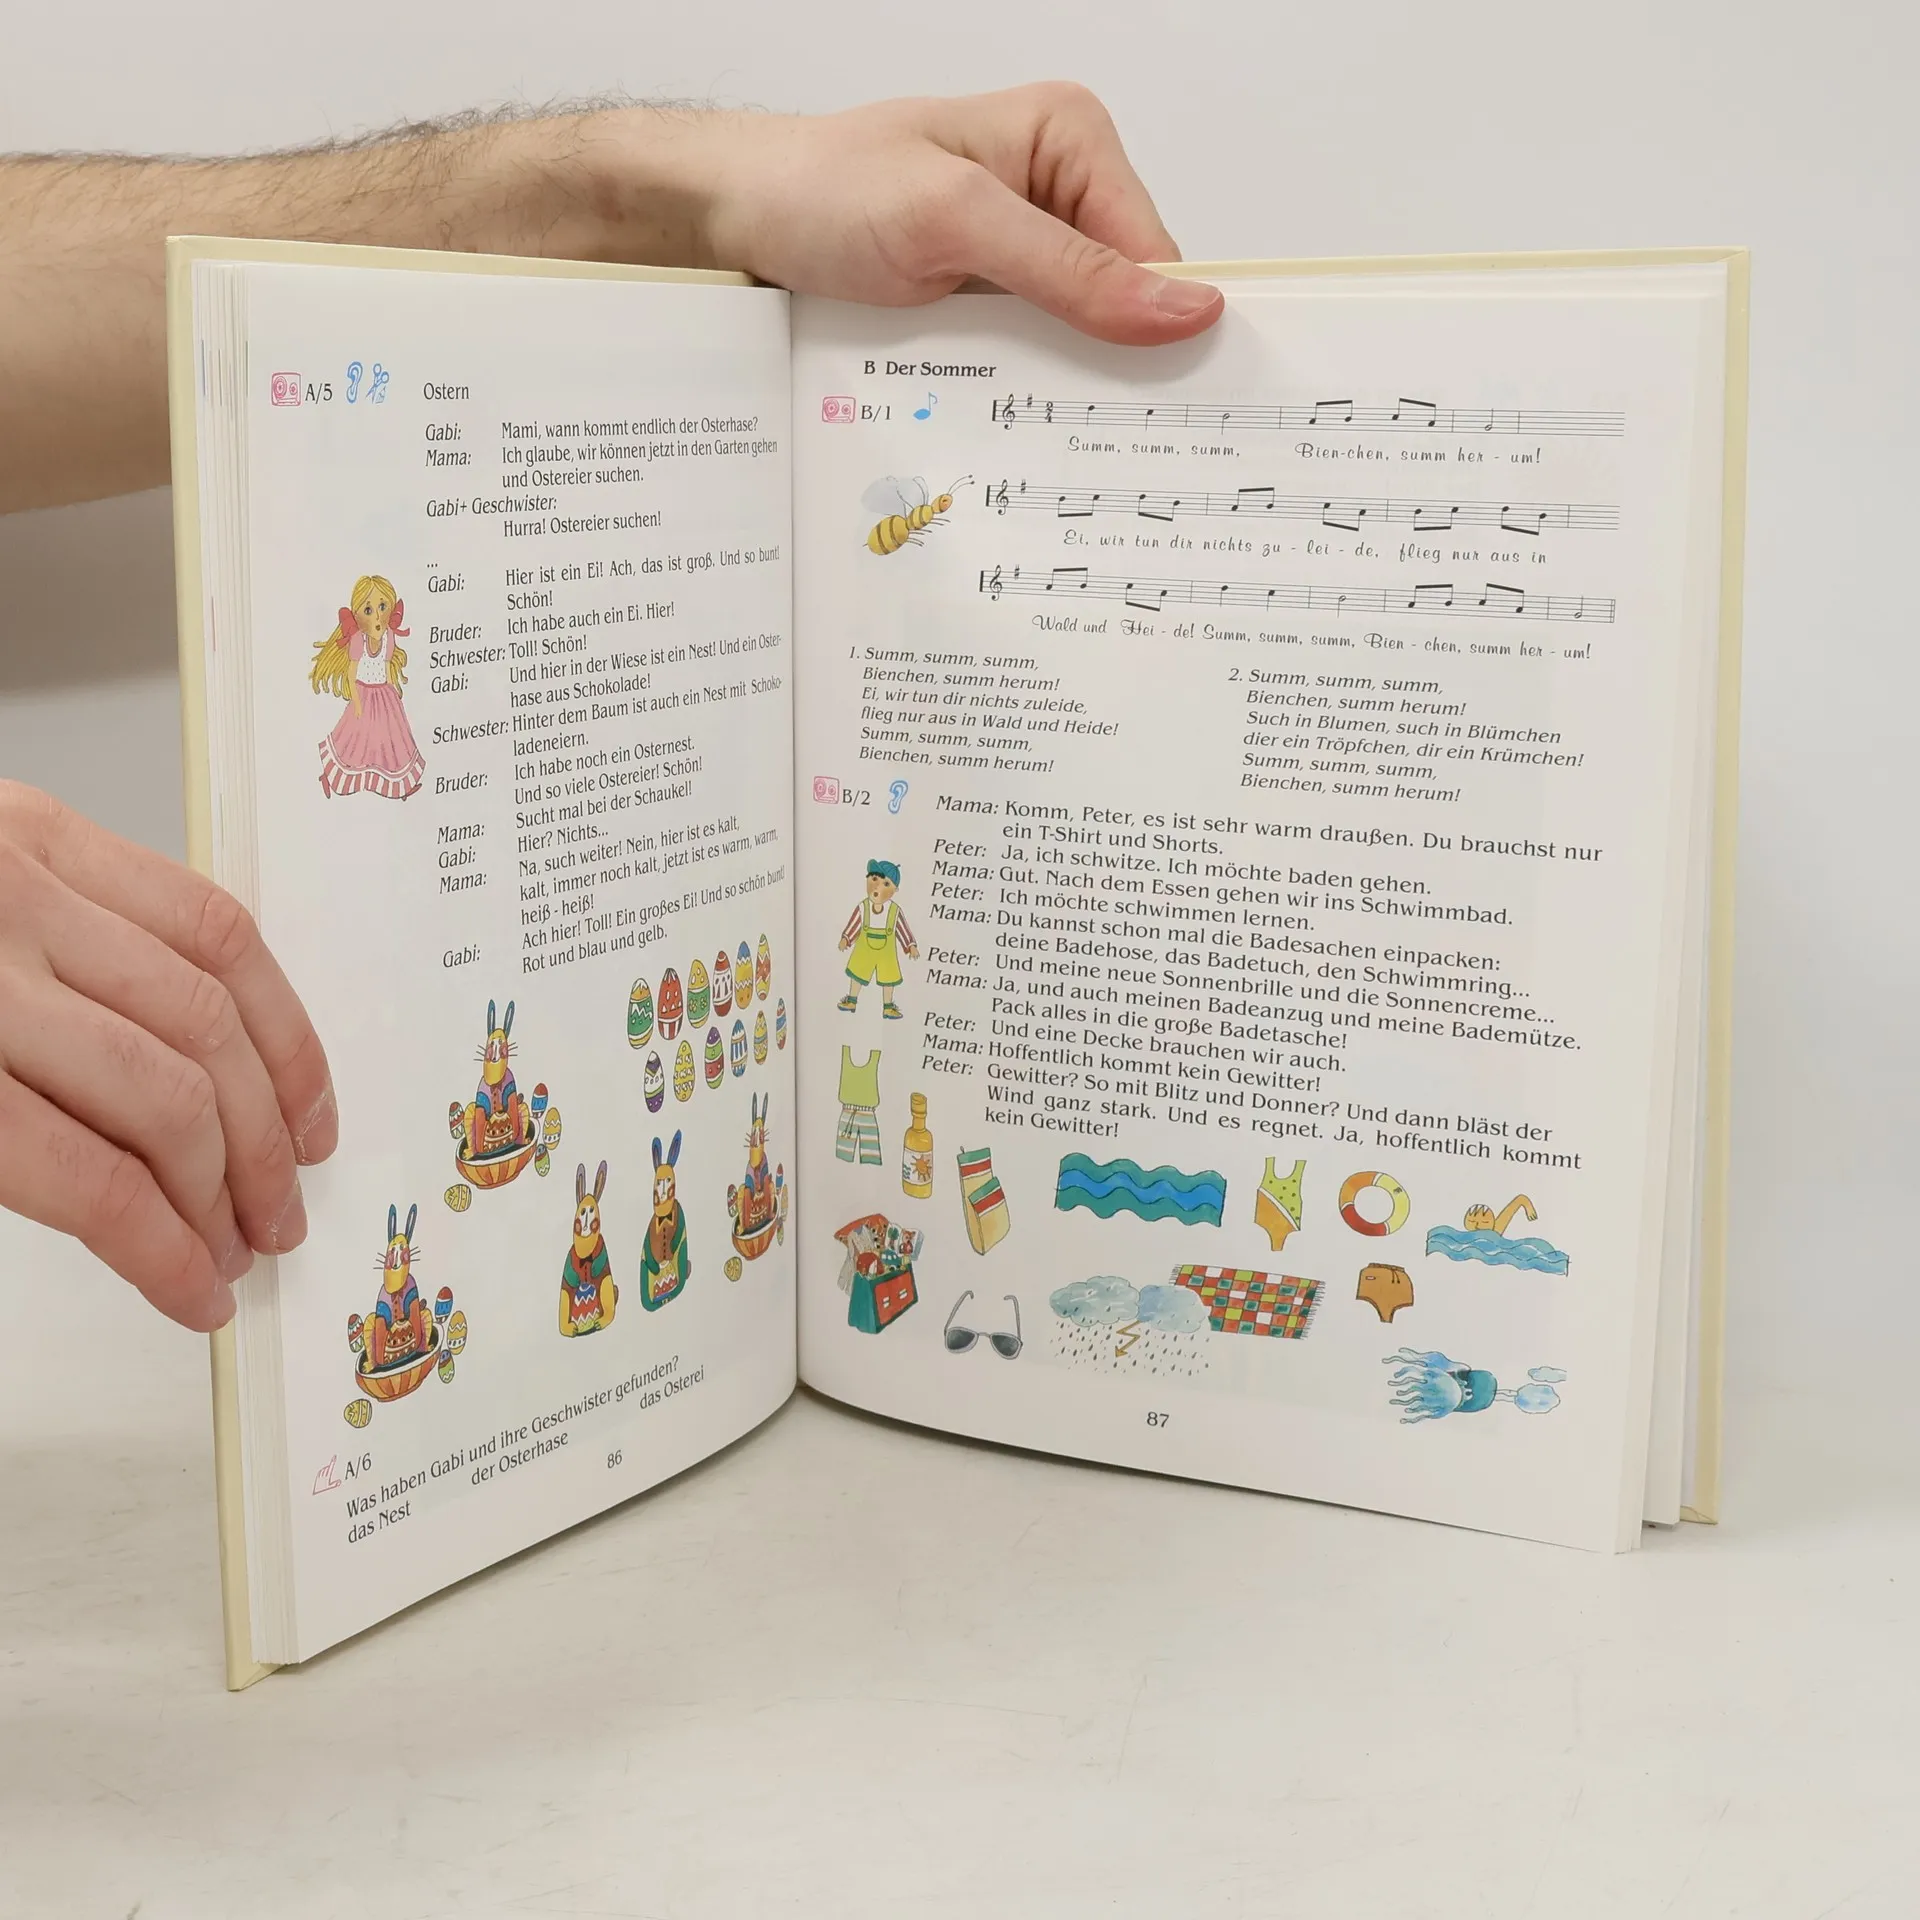 A/5
Ostern
Gabi: Mami, wann kommt endlich der Osterhase?
Mama: Ich glaube, wir können jetzt in den Garten gehen
und Ostereier suchen.
Gabi+ Geschwister:
Hurra! Ostereier suchen!
...
Gabi: Hier ist ein Ei! Ach, das ist groß. Und so bunt!
Schön!
Bruder: Ich habe auch ein Ei. Hier!
Schwester: Toll! Schön!
Gabi: Und hier in der Wiese ist ein Nest! Und ein Oster-
hase aus Schokolade!
Schwester: Hinter dem Baum ist auch ein Nest mit Schoko-
ladeneiern.
Bruder: Ich habe noch ein Osternest.
Und so viele Ostereier! Schön!
Mama: Sucht mal bei der Schaukel!
Gabi: Hier? Nichts...
Mama: Na, such weiter! Nein, hier ist es kalt,
kalt, immer noch kalt, jetzt ist es warm, warm,
heiß - heiß!
Gabi: Ach hier! Toll! Ein großes Ei! Und so schön bunt!
Rot und blau und gelb.
A/6
Was haben Gabi und ihre Geschwister gefunden?
das Nest der Osterhase das Osterei
86
B Der Sommer
B/1
2
4
Summ, summ, summ, Bien-chen, summ her - um!
Ei, wir tun dir nichts zu - lei - de, flieg nur aus in
Wald und Hei - de! Summ, summ, summ, Bien - chen, summ her - um!
1. Summ, summ, summ,
Bienchen, summ herum!
Ei, wir tun dir nichts zuleide,
flieg nur aus in Wald und Heide!
Summ, summ, summ,
Bienchen, summ herum!
2. Summ, summ, summ,
Bienchen, summ herum!
Such in Blumen, such in Blümchen
dier ein Tröpfchen, dir ein Krümchen!
Summ, summ, summ,
Bienchen, summ herum!
B/2
Mama: Komm, Peter, es ist sehr warm draußen. Du brauchst nur
ein T-Shirt und Shorts.
Peter: Ja, ich schwitze. Ich möchte baden gehen.
Mama: Gut. Nach dem Essen gehen wir ins Schwimmbad.
Peter: Ich möchte schwimmen lernen.
Mama: Du kannst schon mal die Badesachen einpacken:
deine Badehose, das Badetuch, den Schwimmring...
Peter: Und meine neue Sonnenbrille und die Sonnencreme...
Mama: Ja, und auch meinen Badeanzug und meine Bademütze.
Pack alles in die große Badetasche!
Peter: Und eine Decke brauchen wir auch.
Mama: Hoffentlich kommt kein Gewitter!
Peter: Gewitter? So mit Blitz und Donner? Und dann bläst der
Wind ganz stark. Und es regnet. Ja, hoffentlich kommt
kein Gewitter!
87